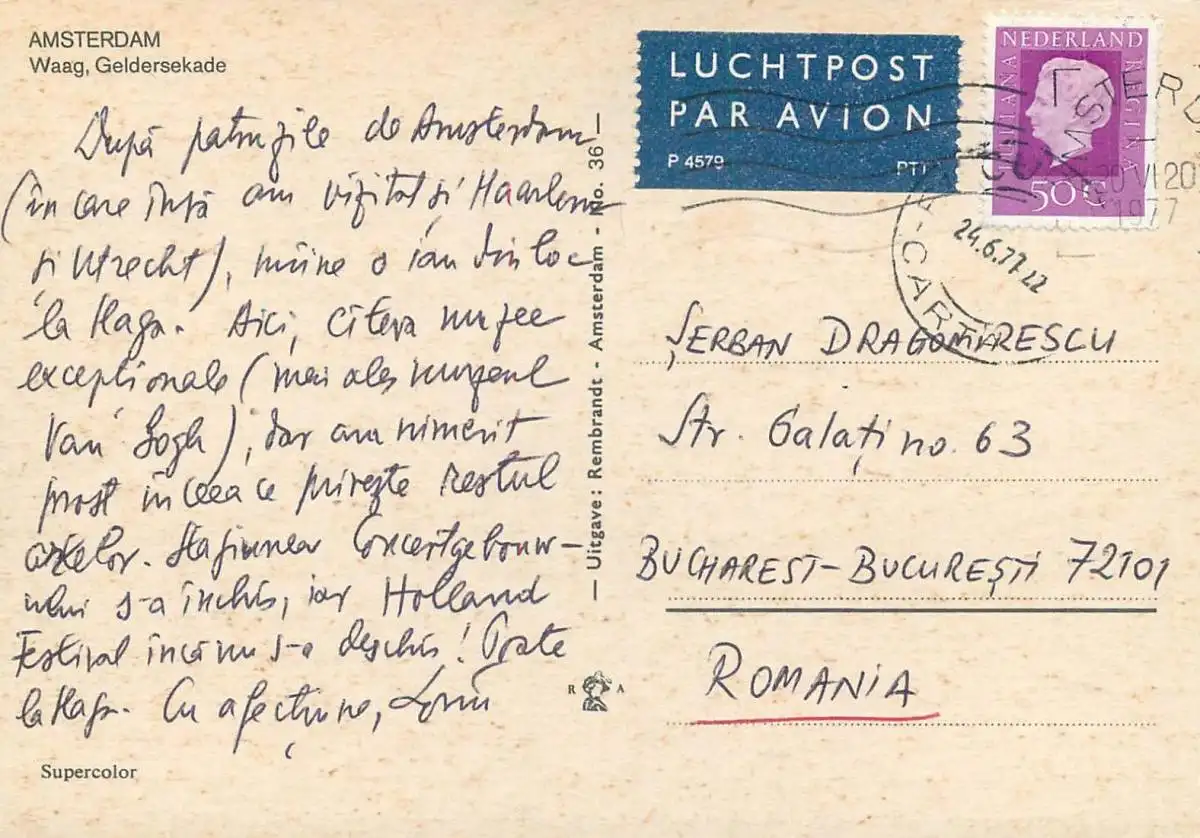 AMSTERDAM
Waag, Geldersekade
După patru zile de Amsterdam
(în care însă am vizitat și Haarlem
și Utrecht), mâine o iau din loc
la Haga. Aici, cîteva muzee
excepționale (mai ales muzeul
Van Gogh), dar am nimerit
prost în ceea ce privește restul
artelor. Stagiunea Concertgebouw-
ului s-a închis, iar Holland
Festival încă nu s-a deschis! Poate
la Haga. Cu afecțiune,
Supercolor
— Uitgave: Rembrandt - Amsterdam - No. 36 —
R A
LUCHTPOST
PAR AVION
P 4579 PTT
NEDERLAND
JULIANA REGINA
50c
20 VI 20
1977
24.6.77.22
CARTA
ȘERBAN DRAGOMIRESCU
Str. Galați no. 63
BUCHAREST-BUCUREȘTI 72101
ROMANIA